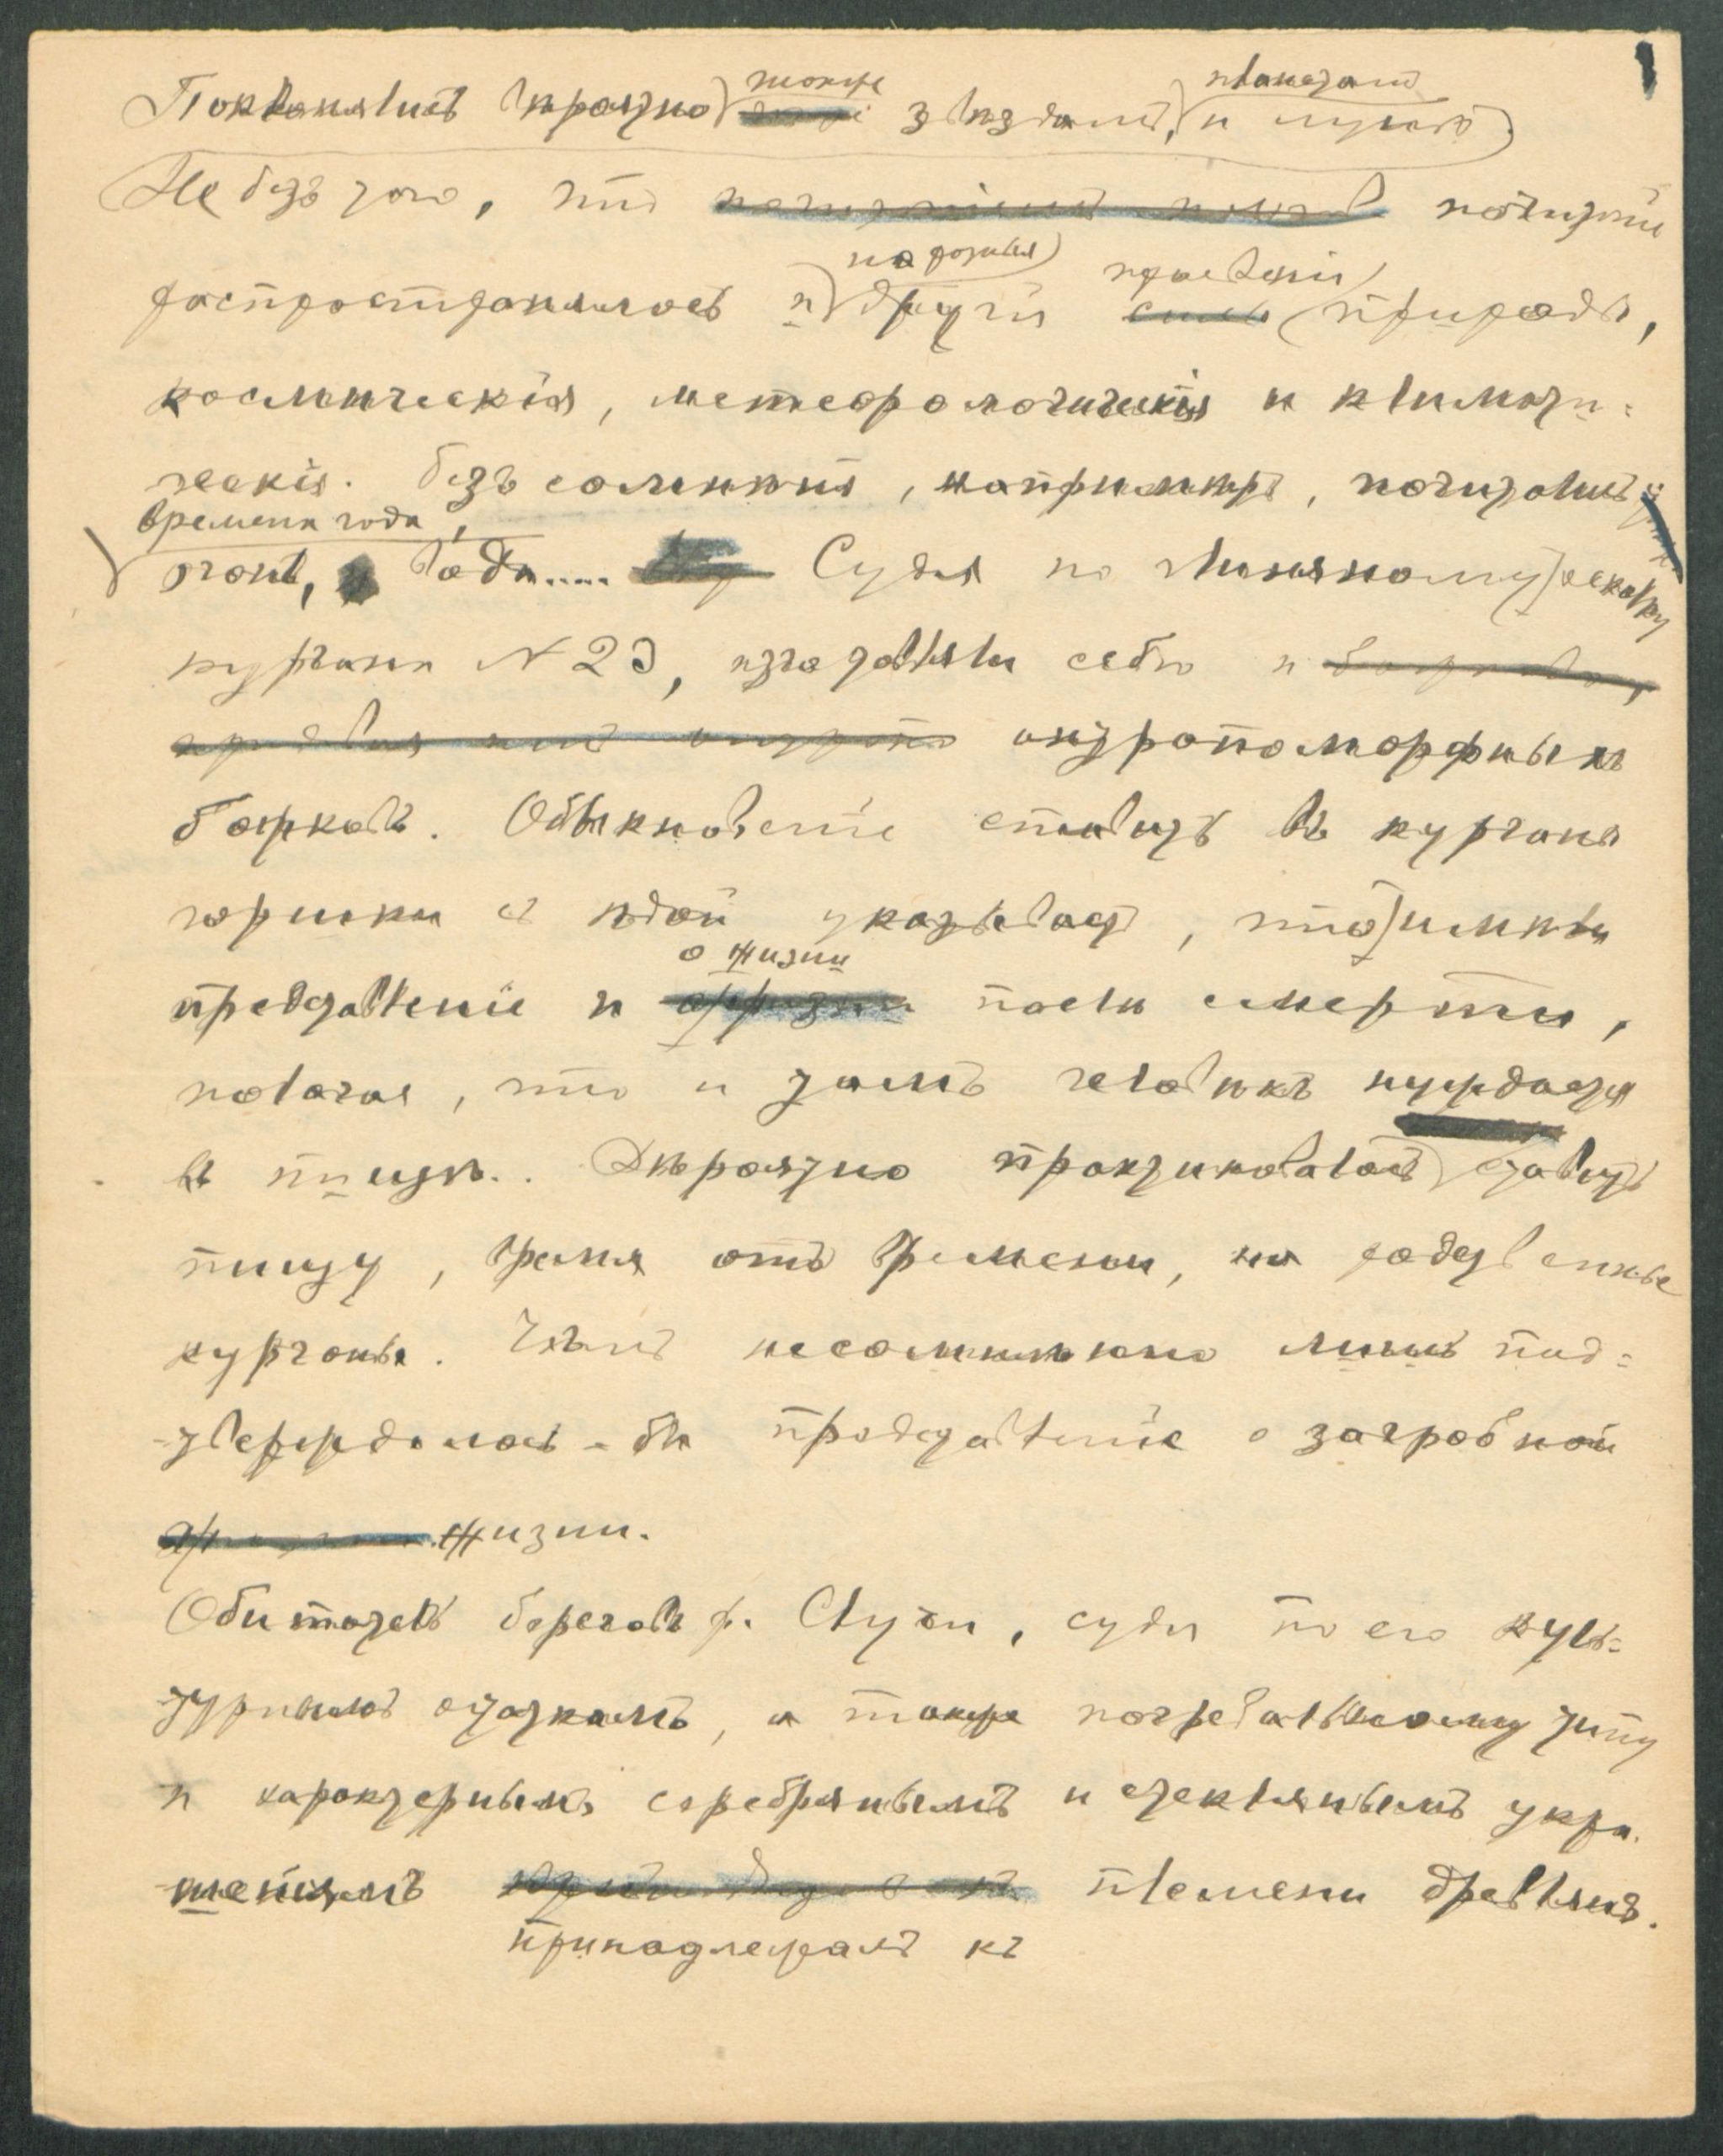 Поклонялись вѣроятно также звѣздамъ, планетамъ и лунѣ.
Не безъ того, что почитаніе
распространялось и на другія явленія природы,
космическія, метеорологическія и климати-
ческія. Безъ сомнѣнія, напримѣръ, почитались
времена года,
огонь, вода..... Судя по глиняному
кургана N 23, изготовляли себѣ и
антропоморфныхъ
божковъ. Обыкновеніе ставить въ курганы
горшки съ ѣдой указываетъ, что имѣли
представленіе и о жизни послѣ смерти,
полагая, что и тамъ человѣкъ нуждается
въ пищѣ. Вѣроятно практиковалось ставить
пищу, время отъ времени, на родственные
курганы. Чѣмъ несомнѣнно лишь под-
тверждалось-бы представленіе о загробной
жизни.
Обитатель береговъ р. Случи, судя по его куль-
турнымъ остаткамъ, а также погребальному типу
и характернымъ серебрянымъ и стекляннымъ укра-
шеніямъ племени древлянъ.
принадлежалъ къ